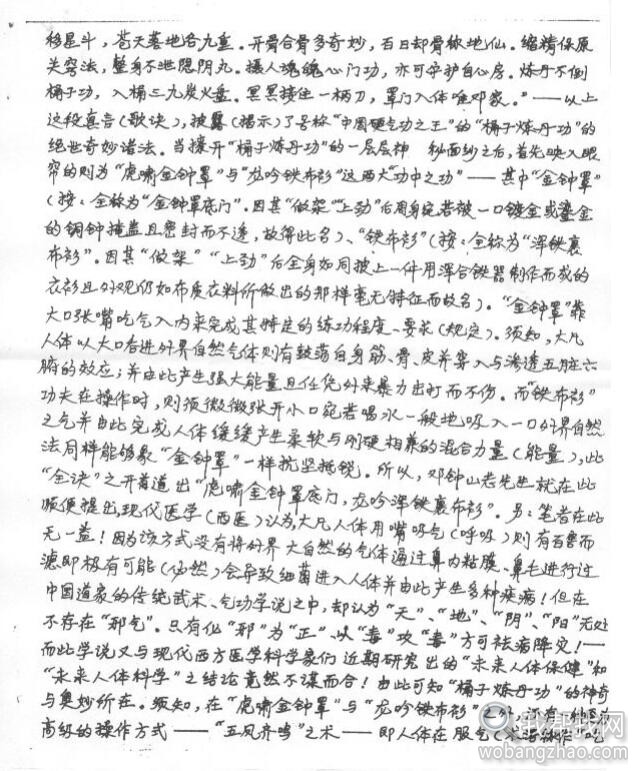 移星斗，苍天基地各九重。开骨合骨多奇妙，百日却骨称地仙。缩精保原
关窍法，整身不泄隐阴丸。摄人魂魄心门功，亦可守护自心房。炼丹不倒
桶子功，入桶三九炭火盘。罡罡接住一柄刀，罩门入体唯邓家。”——以上
这段真言(歌诀)，披露(揭示)了号称“中国硬气功之王”的“桶子炼丹功”的
绝世奇妙诸法。当撩开“桶子炼丹功”的一层层神 秘面纱之后，首先映入眼
帘的则为“虎啸金钟罩”与“龙吟铁布衫”这两大“功中之功”——其中“金钟罩”
(按：全称为“金钟罩底门”。因其“做架”“上劲”后周身宛若被一口镀金或鎏金
的铜钟掩盖且密封而不透，故得此名)、“铁布衫”(按：全称为“浑铁裹
布衫”。因其“做架”“上劲”后全身如同披上一件用浑合铁器制作而成的
衣衫且外观仍如布质衣料所做出的那样毫无特征而故名)。“金钟罩”靠
大口张嘴吃气入内来完成其特定的练功程度、要求(规定)。须知，大凡
人体以大口吞进外界自然气体则有鼓荡自身筋、骨、皮并窜入与渗透五脏六
腑的效应；并由此产生强大能量且任凭外来暴力击打而不伤。而“铁布衫”
功夫在操作时，则须微微张开小口宛若喝水一般地吸入一口外界自然
之气并由此完成人体缓缓产生柔软与刚硬相兼的混合力量(能量)，此
法同样能够象“金钟罩”一样抗坚抵锐。所以，邓钟山老先生就在此
“全诀”之开首道出“虎啸金钟罩底门，龙吟浑铁裹布衫”。另：笔者在此
顺便提出，现代医学(西医)认为大凡人体用嘴吸气(呼吸)则有百害而
无一益！因为该方式没有将外界大自然的气体通过鼻内粘膜、鼻毛进行过
滤即极有可能(必然)会导致细菌进入人体并由此产生多种疾病！但在
中国道家的传统武术、气功学说之中，却认为“天”、“地”、“阴”、“阳”无处
不存在“邪气”。只有化“邪”为“正”、以“毒”攻“毒”方可祛病降灾！——
而此学说又与现代西方医学科学家们近期研究出的“未来人体保健”和
“未来人体科学”之结论竟然不谋而合！由此可知“桶子炼丹功”的神奇
与奥妙所在。须知，在“虎啸金钟罩”与“龙吟铁布衫”之外，还有一种更为
高级的操作方式——“五凤齐鸣”之术——即人体在服气(术语称作“吃
我帮找网
wobangzhao.com